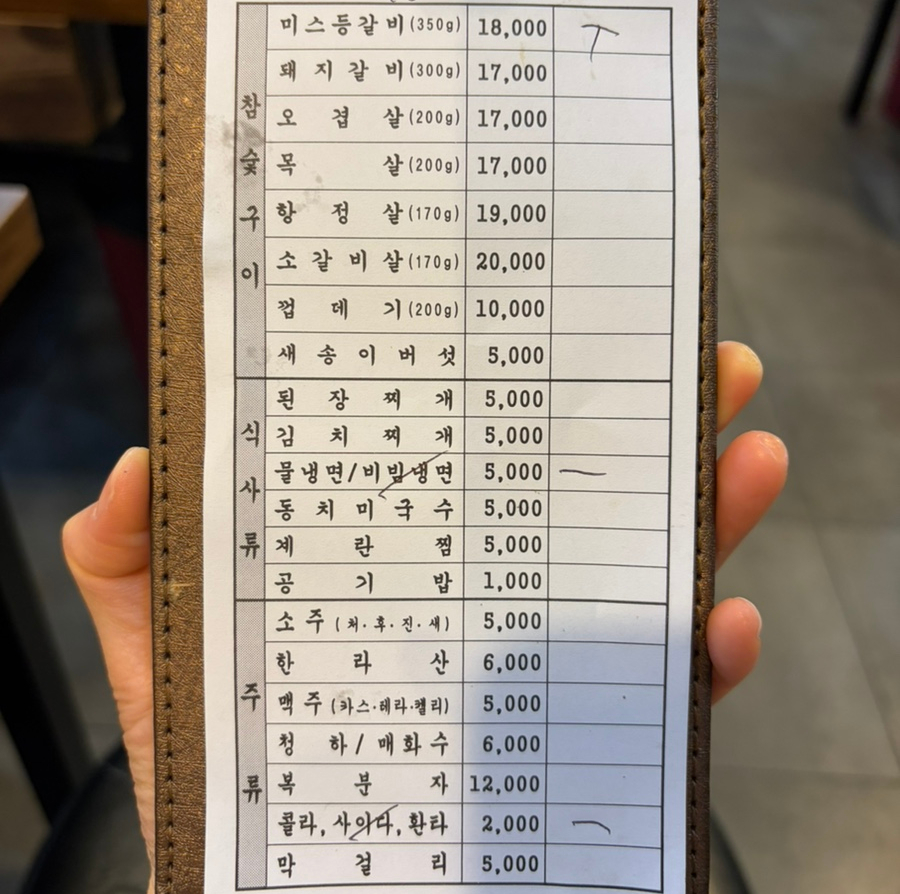 참숯구이
미스등갈비(350g) 18,000 ㅜ
돼지갈비(300g) 17,000
오겹살(200g) 17,000
목살(200g) 17,000
항정살(170g) 19,000
소갈비살(170g) 20,000
껍데기(200g) 10,000
새송이버섯 5,000
식사류
된장찌개 5,000
김치찌개 5,000
물냉면/비빔냉면 5,000 ㅡ
동치미국수 5,000
계란찜 5,000
공기밥 1,000
주류
소주(처·후·진·새) 5,000
한라산 6,000
맥주(카스·테라·켈리) 5,000
청하/매화수 6,000
복분자 12,000
콜라, 사이다, 환타 2,000 ㅡ
막걸리 5,000